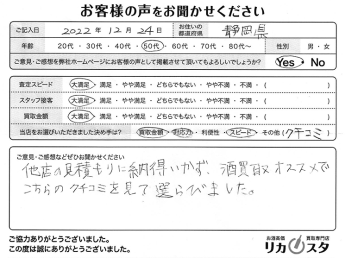 お客様の声をお聞かせください
ご記入日 2022年 12月 24日 お住いの都道府県 静岡県
年齢 20代・30代・40代・50代・60代・70代・80代〜 性別 男・女
ご意見・ご感想を弊社ホームページにお客様の声として掲載させて頂いてもよろしいでしょうか? Yes・No
査定スピード 大満足・満足・やや満足・どちらでもない・やや不満・不満・( )
スタッフ接客 大満足・満足・やや満足・どちらでもない・やや不満・不満・( )
買取金額 大満足・満足・やや満足・どちらでもない・やや不満・不満・( )
当店をお選びいただきました決め手は? 買取金額・対応力・利便性・スピード・その他(クチコミ)
ご意見・ご感想などぜひお聞かせください
他店の見積もりに納得いかず、酒買取オススメで
こちらのクチコミを見て選らびました。
ご協力ありがとうございました。
この度は誠にありがとうございました。
お酒高額 買取専門店
リカスタ